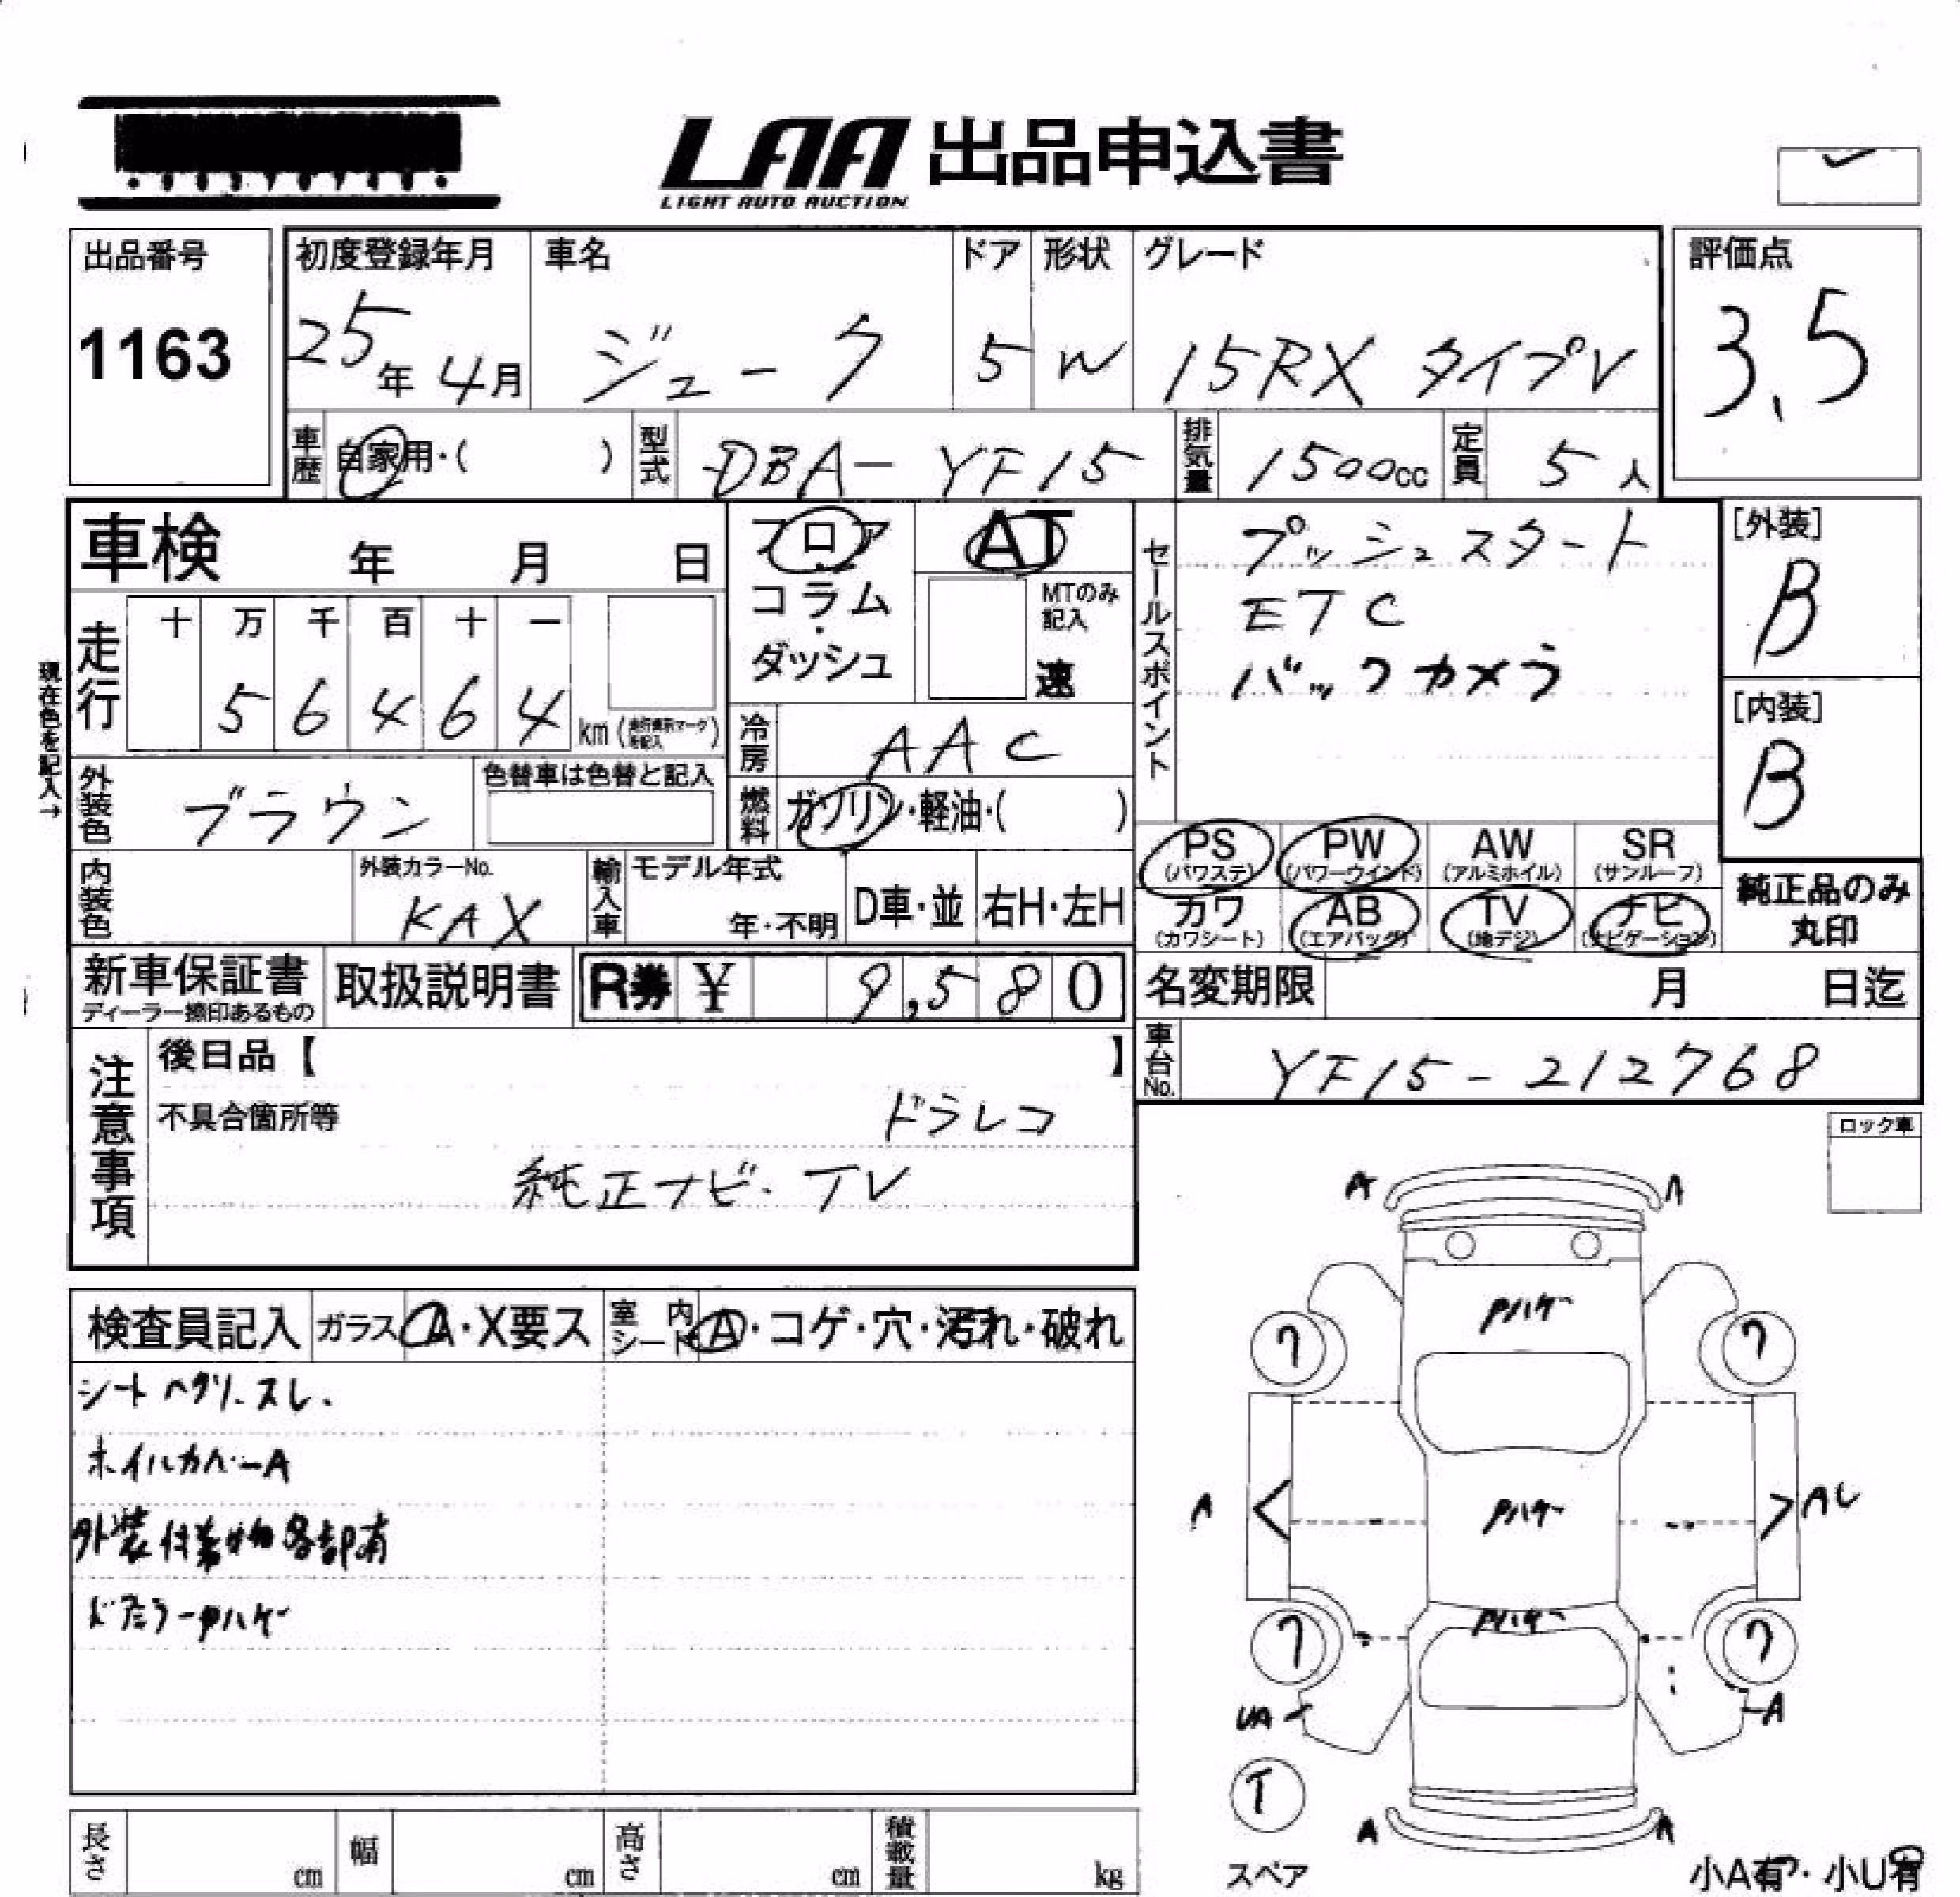 LAA 出品申込書
LIGHT AUTO AUCTION
出品番号
1163
初度登録年月
25年 4月
車名
ジューク
ドア
5
形状
W
グレード
15RX タイプV
評価点
3.5
車歴 自家用・( )
型式 DBA-YF15
排気量 1500cc
定員 5人
車検 年 月 日
フロア
コラム
・
ダッシュ
AT
MTのみ
記入
速
セールスポイント
プッシュスタート
ETC
バックカメラ
[外装]
B
[内装]
B
現在色を記入→
走行
十 万 千 百 十 一
5 6 4 6 4 km
冷房 AAC
外装色 ブラウン
色替車は色替と記入
燃料 ガソリン・軽油・( )
PS (パワステ)
PW (パワーウインド)
AW (アルミホイル)
SR (サンルーフ)
カワ (カワシート)
AB (エアバッグ)
TV (地デジ)
ナビ (ナビゲーション)
純正品のみ
丸印
内装色
外装カラーNo.
KAX
輸入車
モデル年式
年・不明
D車・並
右H・左H
新車保証書
ディーラー捺印あるもの
取扱説明書
R券 ¥ 9,580
名変期限 月 日迄
車台No. YF15-212768
注意事項
後日品【 】
不具合箇所等
ドラレコ
純正ナビ・TV
ロック車
検査員記入
ガラス A・X要ス
室内シート A・コゲ・穴・汚れ・破れ
シートヘタリ、スレ.
ホイルカバーA
外装付着物各部有
ドアミラーPハゲ
A A
Pハゲ
7 7
A Pハゲ A
Pハゲ
7 7
UA A
T
A A
スペア
小A有・小U有
長さ cm
幅 cm
高さ cm
積載量 kg